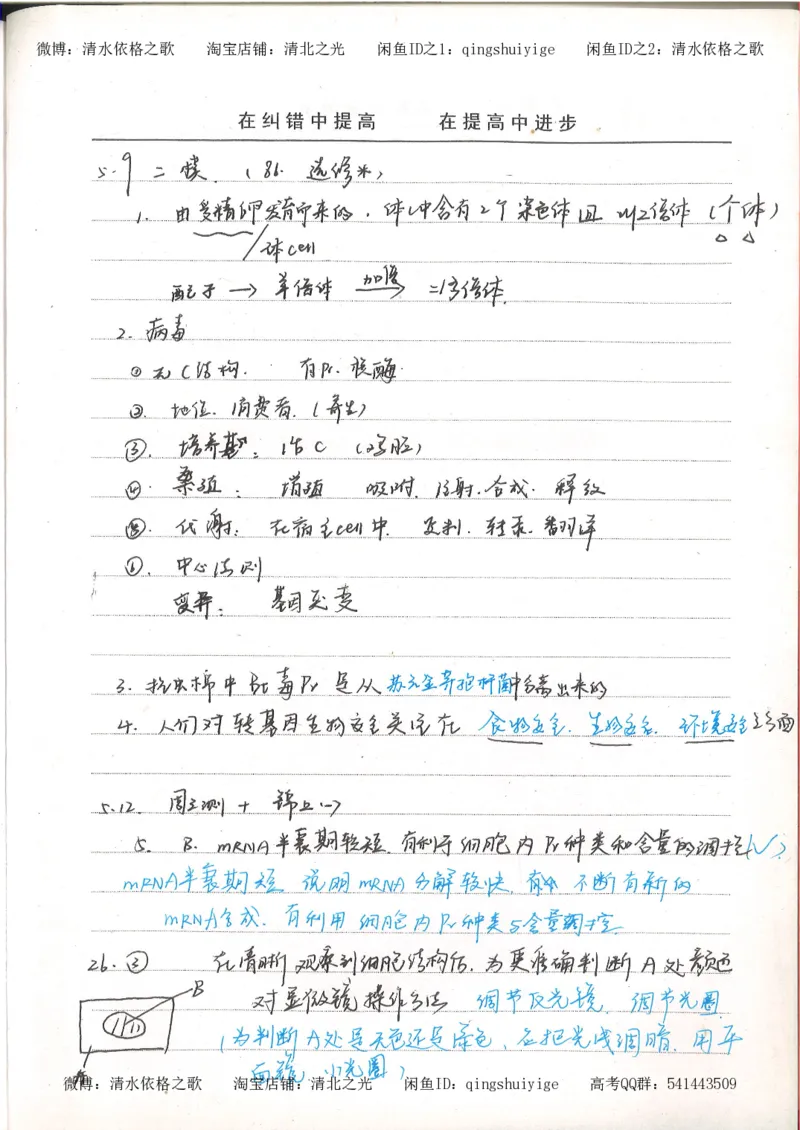 微博：清水依格之歌 淘宝店铺：清北之光 闲鱼ID之1：qingshuiyige 闲鱼ID之2：清水依格之歌
在纠错中提高 在提高中进步
5.9 二模 (86. 选修*)
1. 由受精卵发育而来的，体C中含有2个染色体组 叫2倍体（个体）
体cell
配子 → 单倍体 加倍 → 二倍体
2. 病毒
① 无C结构. 有Pr. 核酶
②. 地位. 消费者.（寄生）
③. 培养基：活C（鸡胚）
④ 繁殖： 增殖 吸附. 注射. 合成. 释放
⑤. 代谢. 在宿主cell中. 复制. 转录. 翻译
⑥. 中心法则
变异： 基因突变
3. 抗虫棉中Bt毒Pr是从苏云金芽孢杆菌中分离出来的
4. 人们对转基因生物安全关注在 食物安全. 生物安全. 环境安全三方面
5.12. 周三测 + 锦上(-)
5. B. mRNA半衰期较短. 有利于细胞内Pr种类和含量的调控(√)
mRNA半衰期短 说明mRNA分解较快. 不断有新的
mRNA合成. 有利用细胞内Pr种类与含量调控.
26. ③ 在清晰观察到细胞结构后. 为更准确判断A处颜色
B
对显微镜操作方法 调节反光镜. 调节光圈
（为判断A处是无色还是 色, 应把光线调暗. 用平
A
面镜. 小光圈）
微博：清水依格之歌 淘宝店铺：清北之光 闲鱼ID：qingshuiyige 高考QQ群：541443509